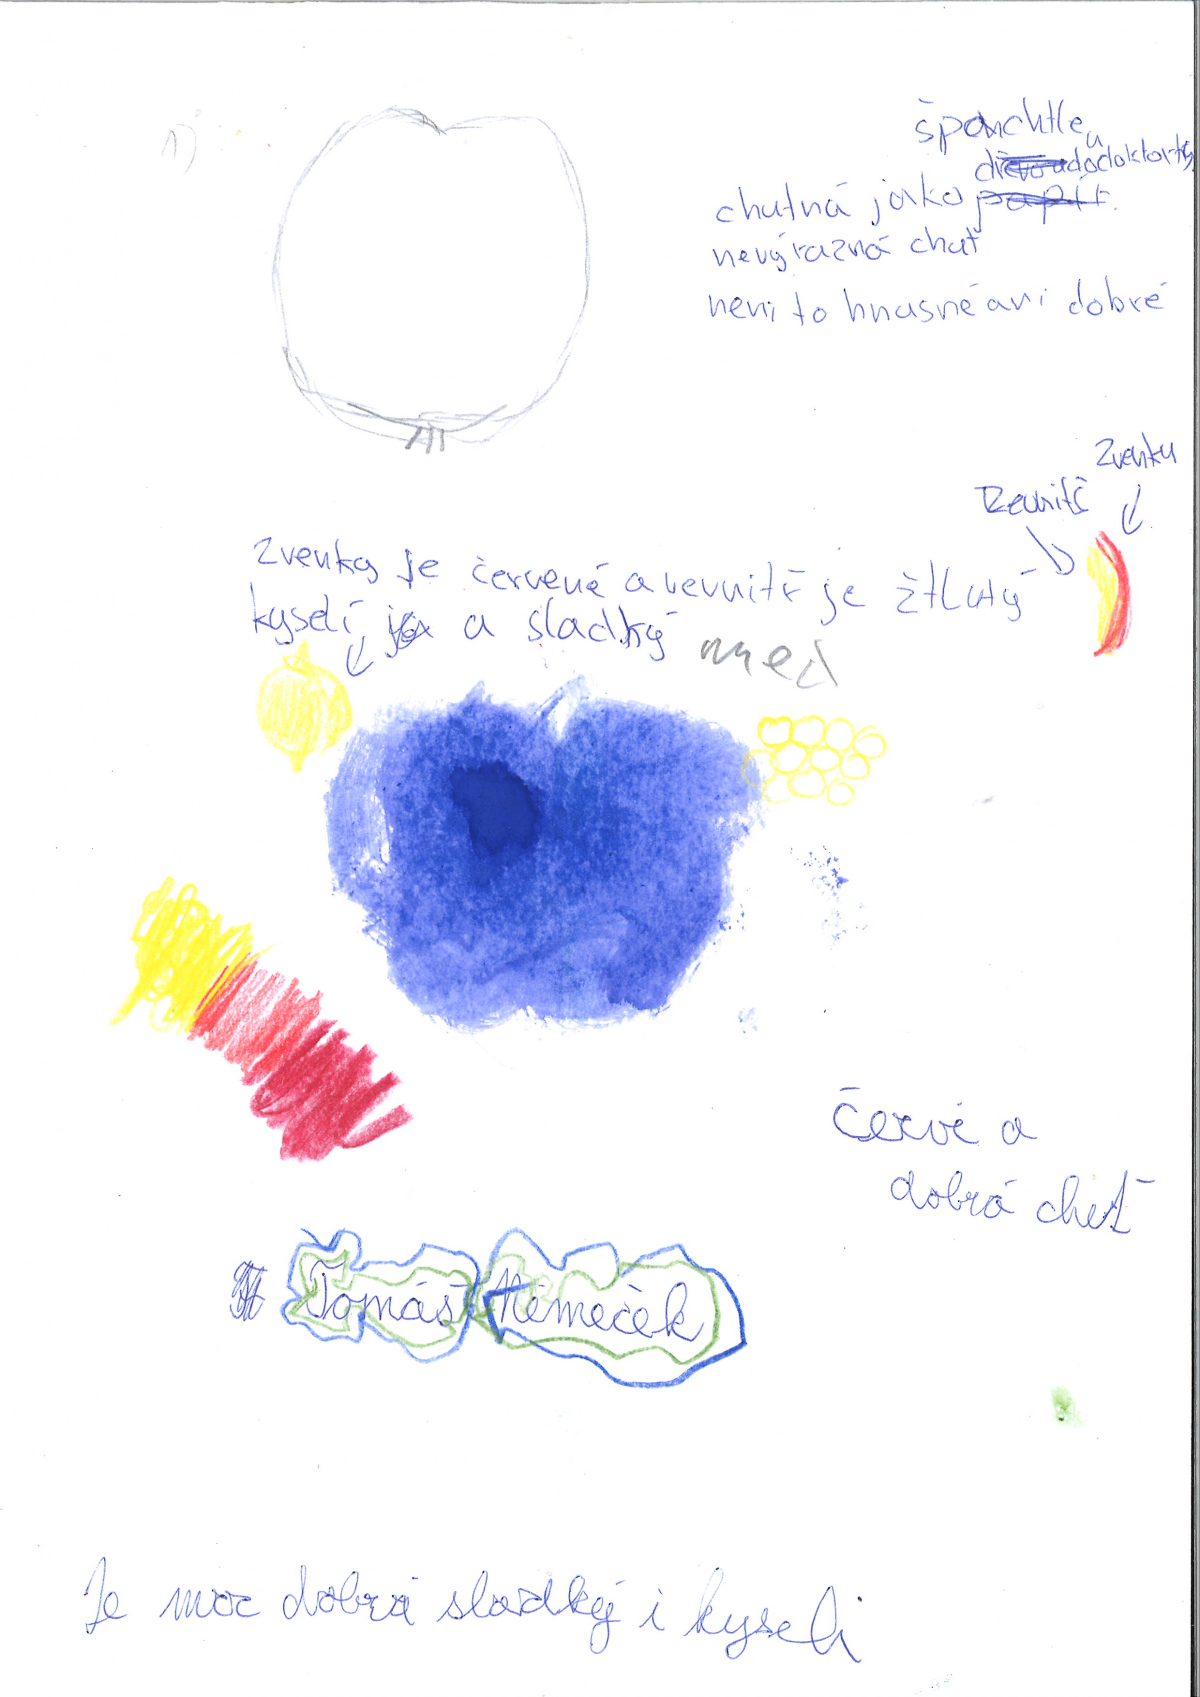 1)
špachtle u
dřevo do doktorky
chutná jako papír.
nevýrazná chuť
neni to hnusné ani dobré
Zvenku
Zevnitř
Zvenku je červené a nevnitř je žtlutý
kyselí, a sladký med
červé a
dobrá chuť
Tomáš Němeček
Je moc dobrá sladký i kyseli